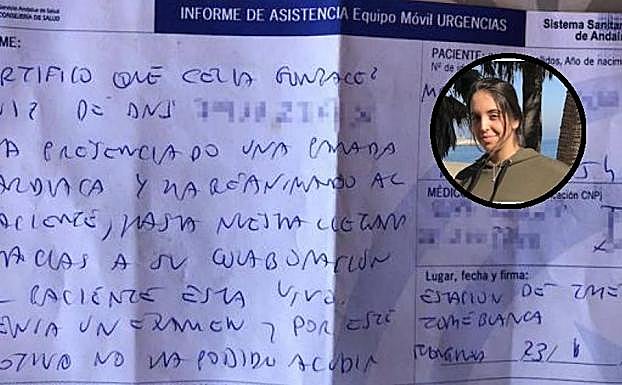 Servicio Andaluz de Salud
CONSEJERÍA DE SALUD
INFORME DE ASISTENCIA Equipo Móvil URGENCIAS
Sistema Sanita
de Andal
RME:
PACIENTE: idos, Año de nacim
Nº de
ERTIFICO QUE CELIA GONZALEZ
UIZ DE DNI
A PRESENCIADO UNA PARADA
ARDIACA Y HA REANIMADO AL
ACIENTE, HASTA NUESTRA LLEGADA
RACIAS A SU COLABORACION
L PACIENTE ESTA VIVO.
ENIA UN EXAMEN Y POR ESTE
OTIVO NO HA PODIDO ACUDIR
MÉDICO ación CNP)
Lugar, fecha y firma:
ESTACION DE TREN
TORREBLANCA
23/